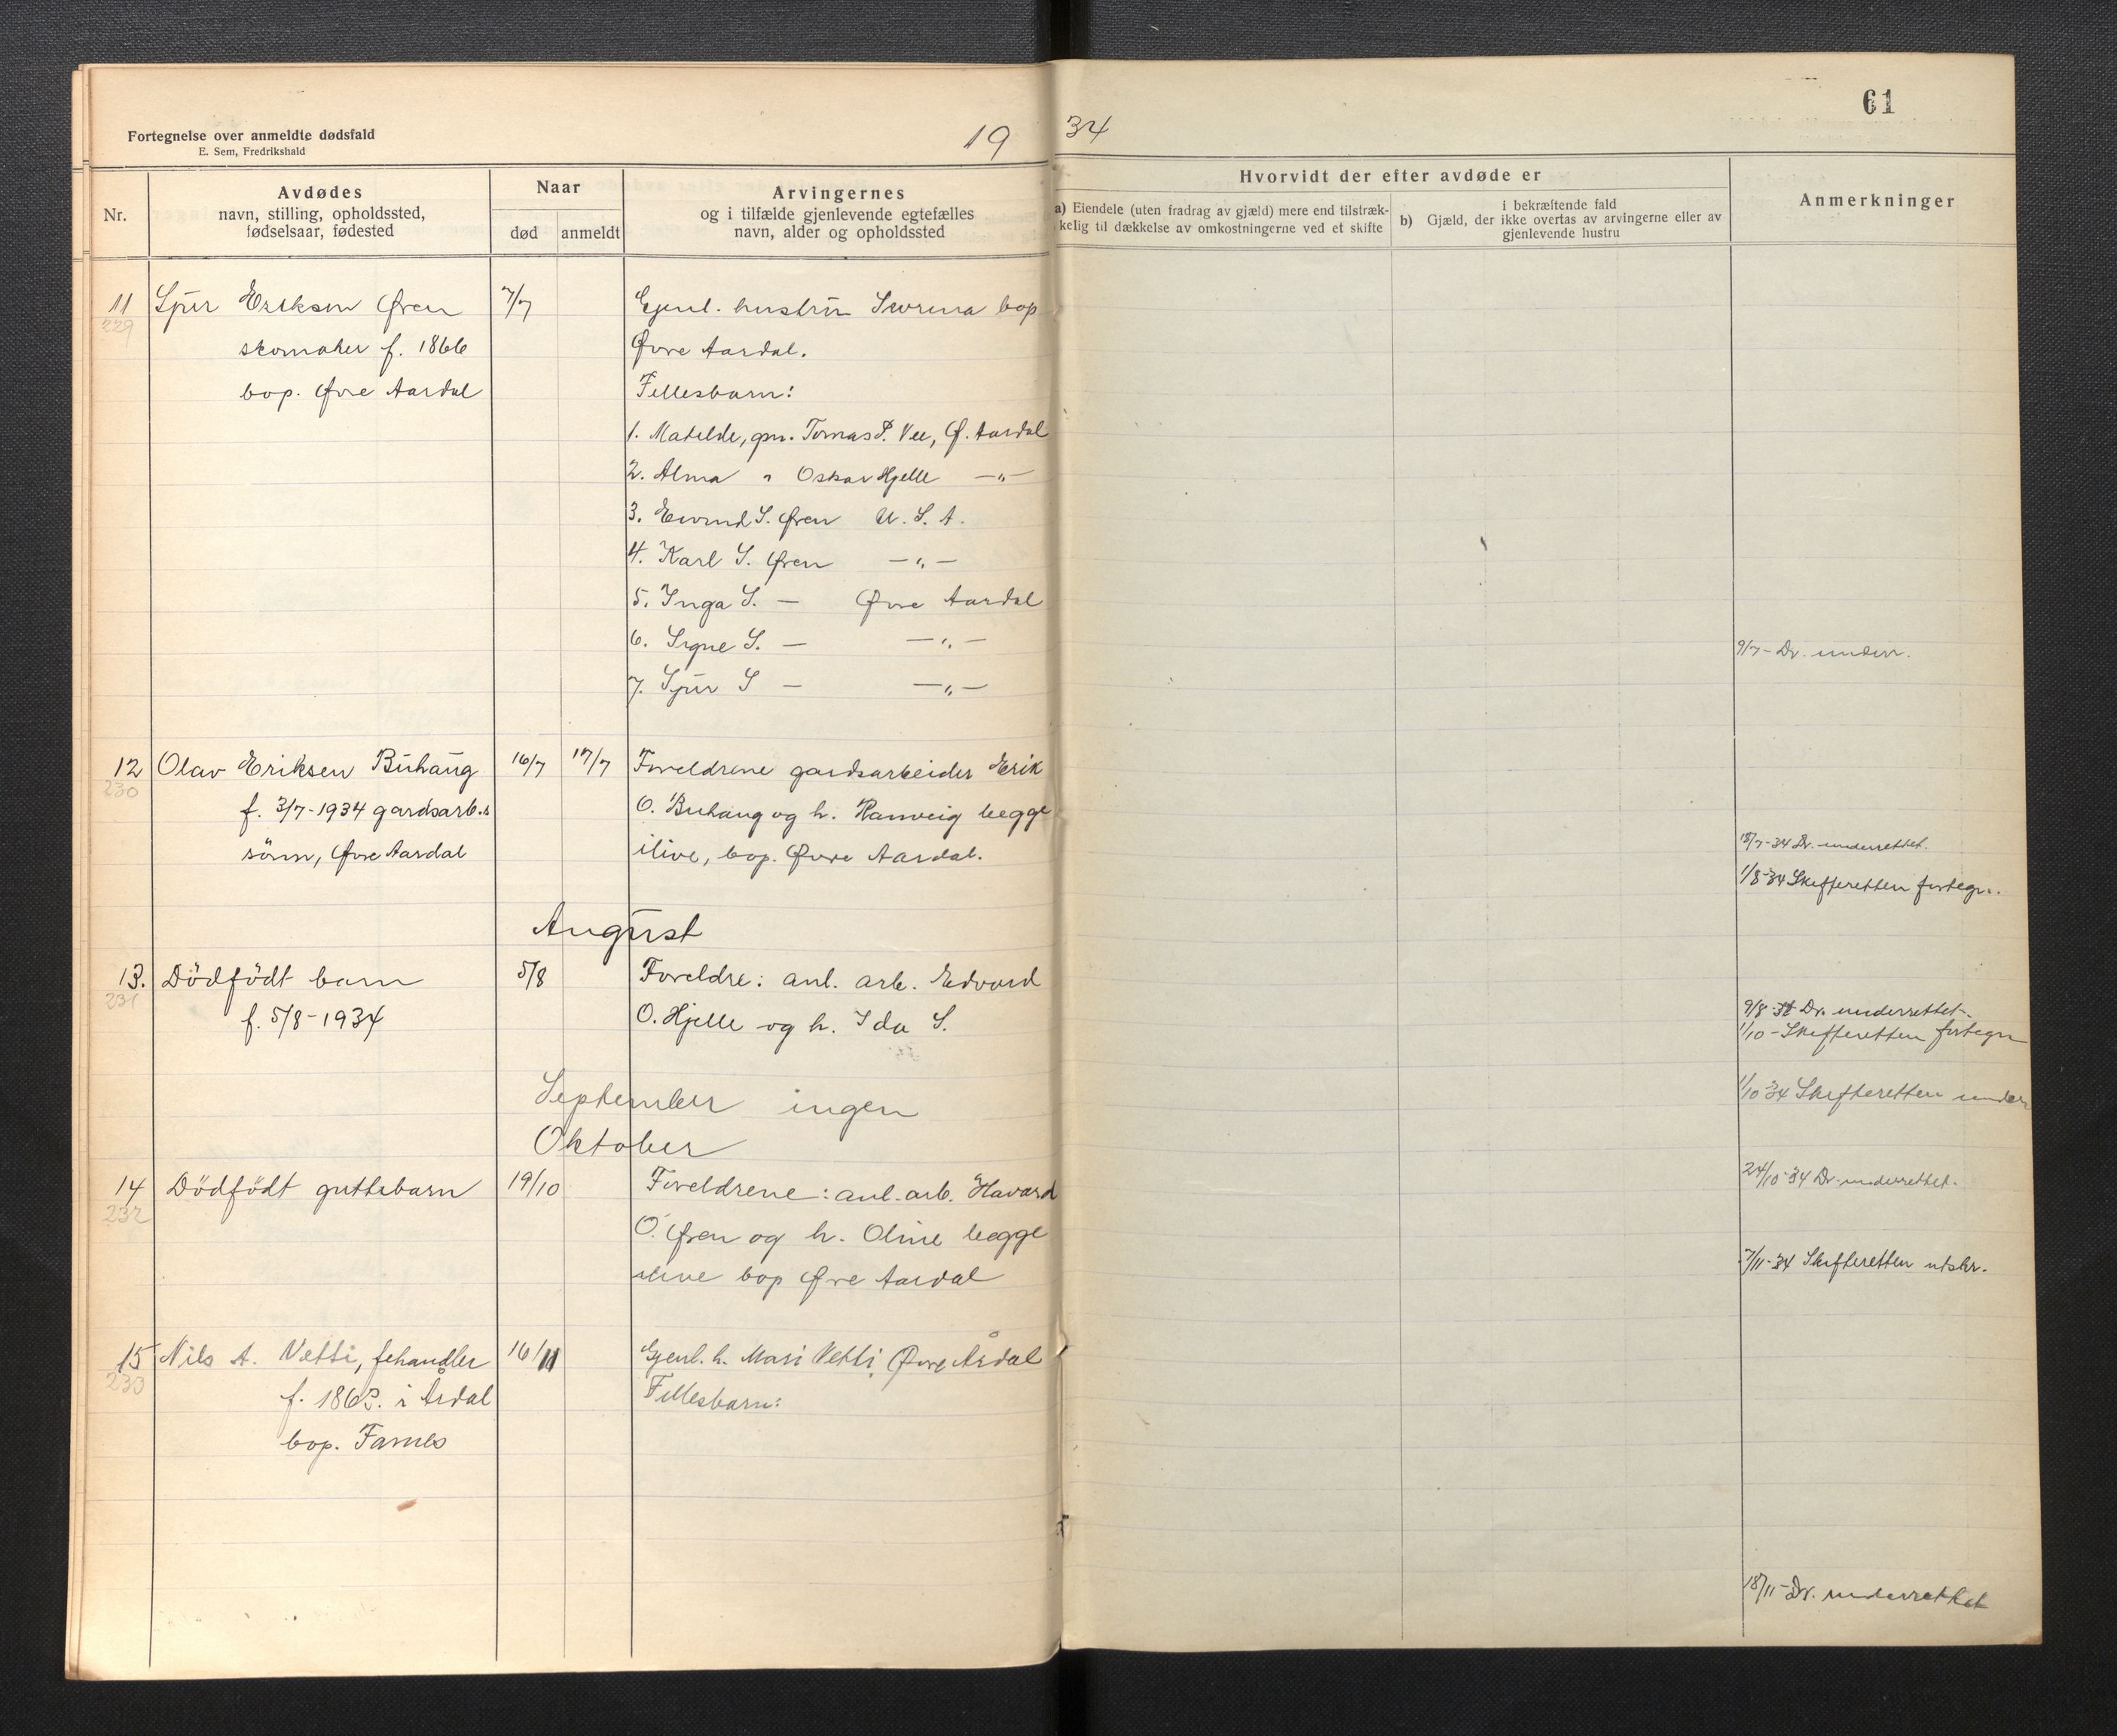 Fortegnelse over anmeldte dødsfald
E. Sem, Fredrikshald
19 34
61
Nr.
Avdødes
navn, stilling, opholdssted,
fødselsaar, fødested
Naar
død
anmeldt
Arvingernes
og i tilfælde gjenlevende egtefælles
navn, alder og opholdssted
Hvorvidt der efter avdøde er
a) Eiendele (uten fradrag av gjæld) mere end tilstræk-
kelig til dækkelse av omkostningerne ved et skifte
b) i bekræftende fald
Gjæld, der ikke overtas av arvingerne eller av
gjenlevende hustru
Anmerkninger
11 Sjur Eriksen Øren 7/7 Gjenl. hustru Severina bop
229
skomaker f. 1866 Øvre Aardal.
bop. Øvre Aardal Fellesbarn:
1. Matilde, gm. Tomas P. Vee, Ø. Aardal
2. Alma " Oskar Hjelle —"—
3. Eivind S. Øren U. S. A.
4. Karl S. Øren —"—
5. Inga S. — Øvre Aardal
6. Signe S. — —"—
9/7 - Dr. underr.
7. Sjur S — —"—
12 Olav Eriksen Buhaug 16/7 17/7 Foreldrene gardsarbeider Erik
230
f. 3/7-1934 gardsarb.s O. Buhaug og h. Ranveig begge
sönn, Øvre Aardal ilive, bop. Øvre Aardal.
18/7-34 Dr. underrettet.
1/8-34 Skifteretten fortegn.
August
13. Dödfödt barn 5/8 Foreldre: anl. arb. Edvard
231
f. 5/8-1934 O. Hjelle og h. Ida S.
9/8-34 Dr. underrettet.
1/10 - Skifteretten fortegn
September ingen
1/10 34 Skifteretten underr
Oktober
14 Dödfödt guttebarn 19/10 Foreldrene: anl. arb. Havard
232
24/10-34 Dr. underrettet.
O. Øren og h. Oline begge
ilive bop Øvre Aardal
7/11-34 Skifteretten utskr.
15 Nils A. Vetti, fehandler 16/11 Gjenl. h. Mari Vetti, Øvre Årdal
233
f. 1863. i Årdal Fellesbarn:
bop. Farnes
18/11 - Dr. underrettet